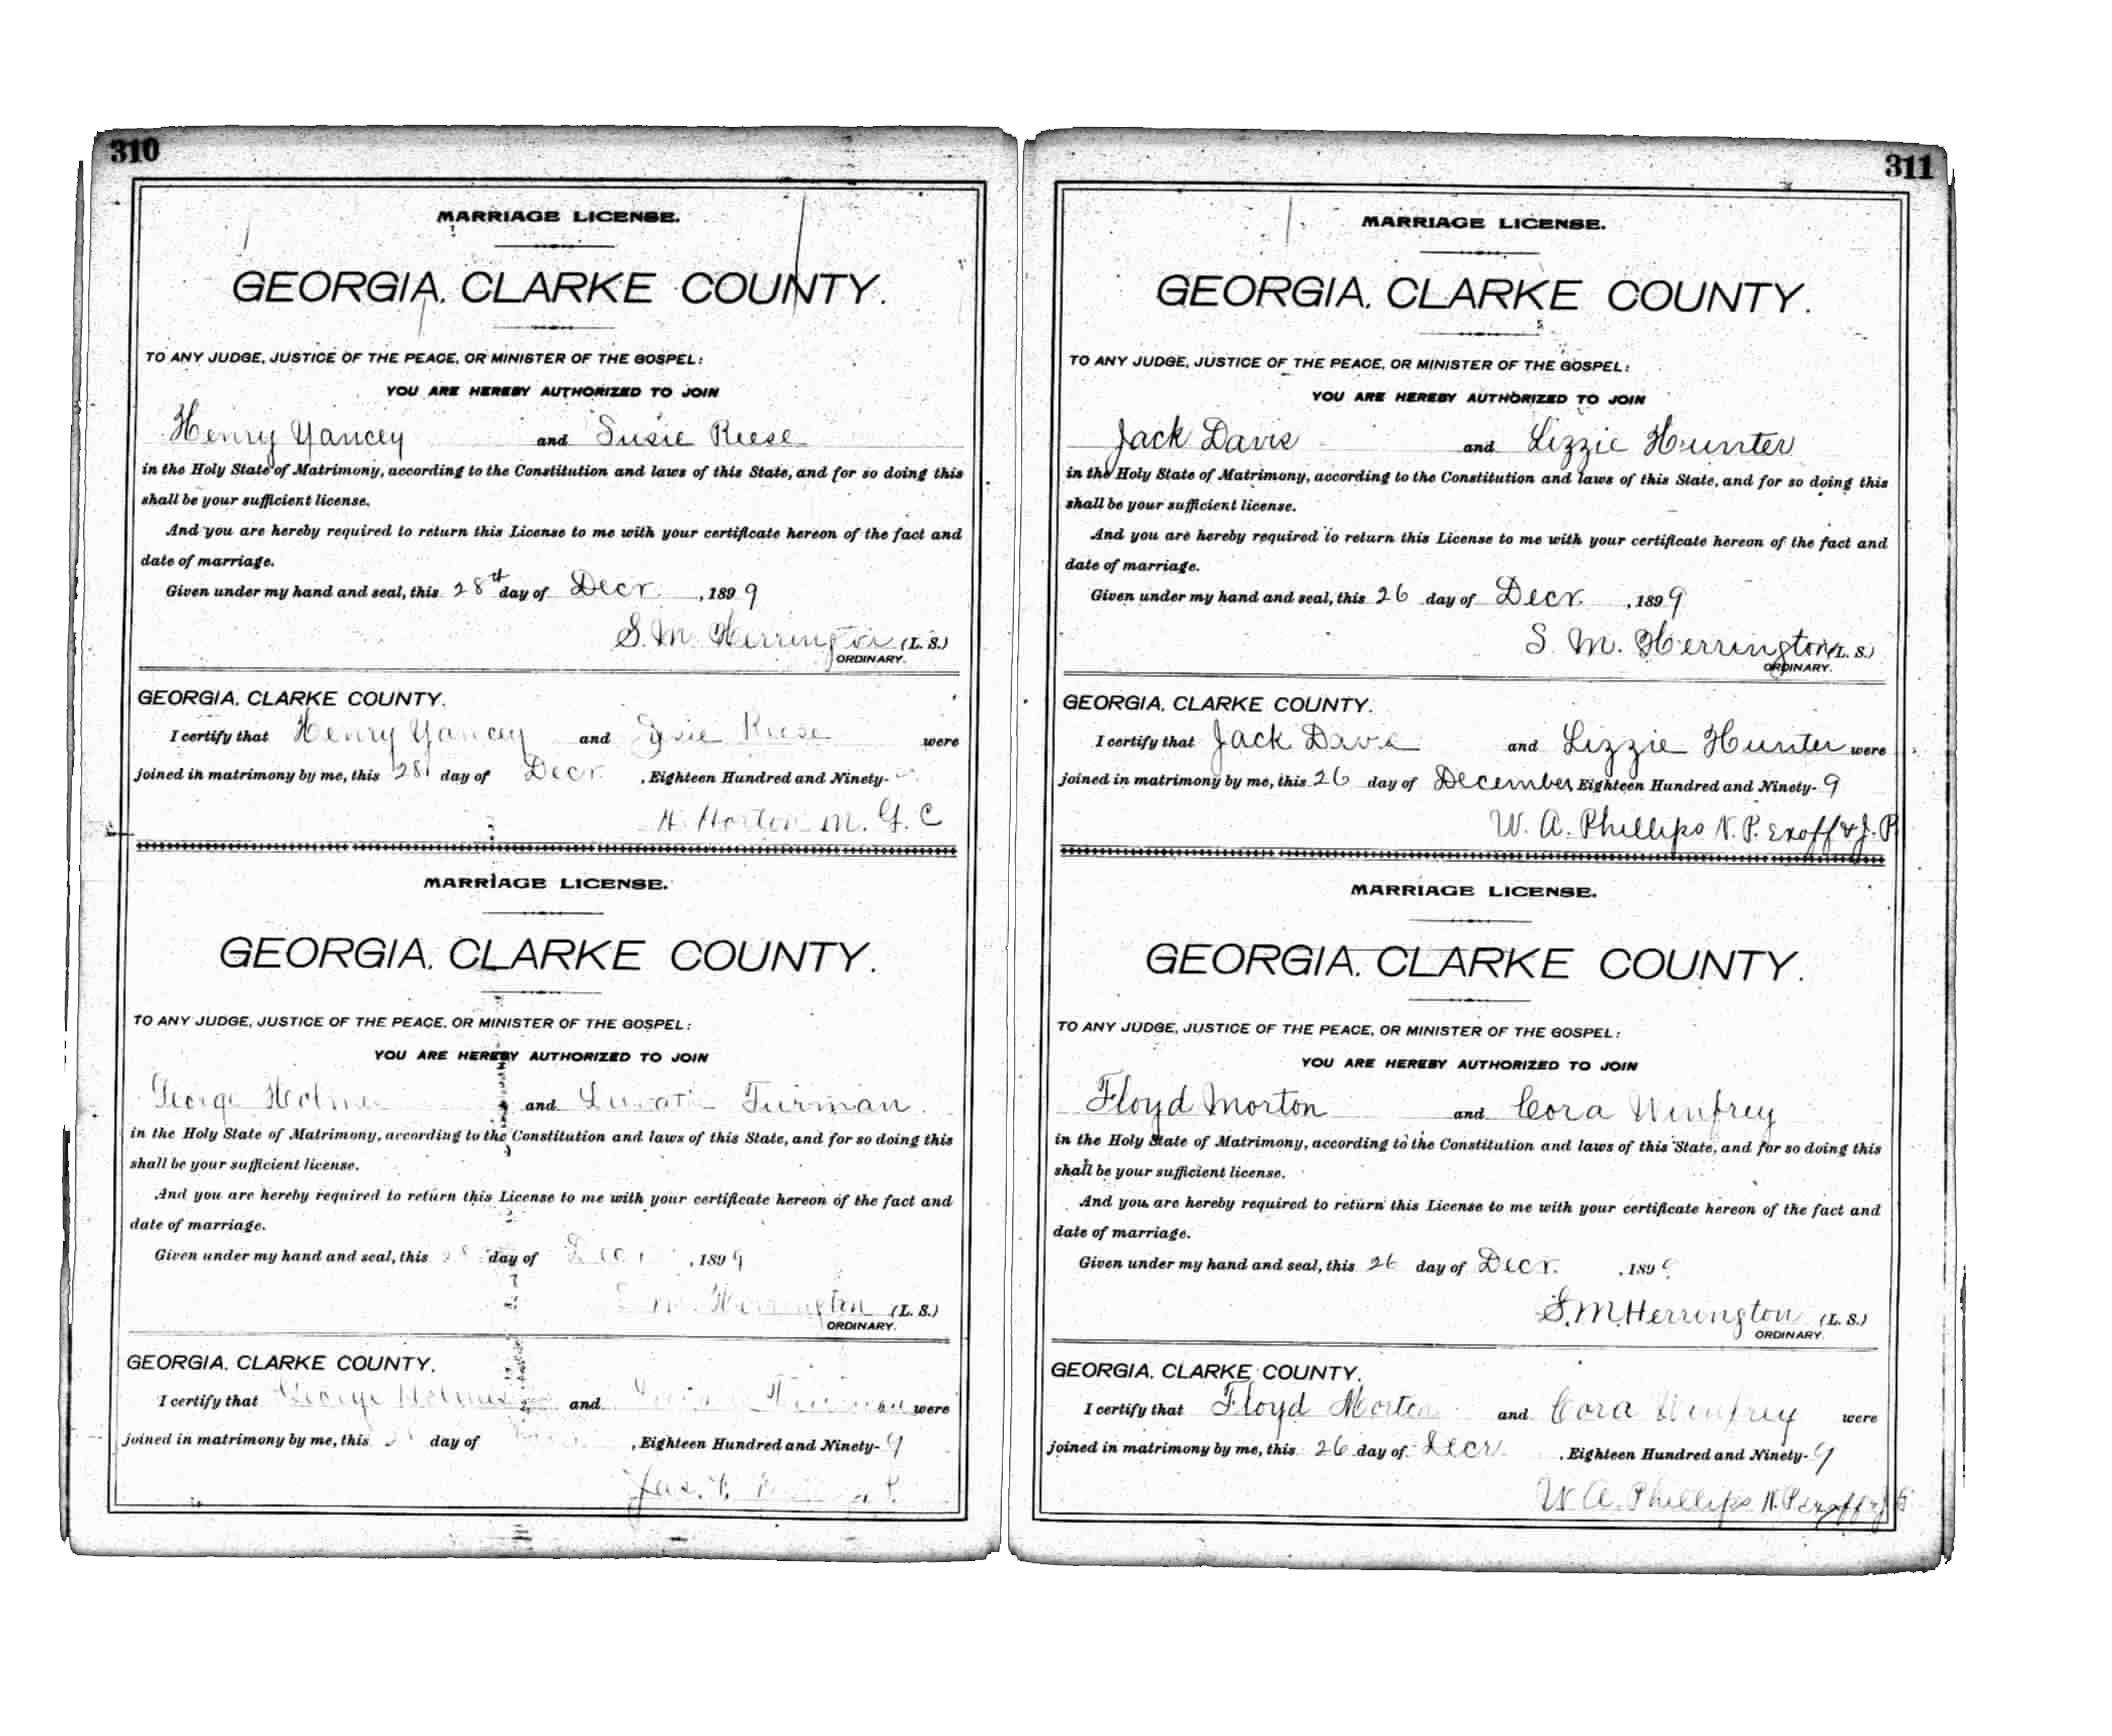 310
MARRIAGE LICENSE.
GEORGIA, CLARKE COUNTY.
TO ANY JUDGE, JUSTICE OF THE PEACE, OR MINISTER OF THE GOSPEL:
YOU ARE HEREBY AUTHORIZED TO JOIN
Henry Yancey and Susie Reese
in the Holy State of Matrimony, according to the Constitution and laws of this State, and for so doing this
shall be your sufficient license.
And you are hereby required to return this License to me with your certificate hereon of the fact and
date of marriage.
Given under my hand and seal, this 28th day of Decr. , 1899
S. M. Herrington (L. S.)
ORDINARY.
GEORGIA, CLARKE COUNTY.
I certify that Henry Yancey and Susie Reese were
joined in matrimony by me, this 28 day of Decr. , Eighteen Hundred and Ninety-
H. Horton M. G. C
MARRIAGE LICENSE.
GEORGIA, CLARKE COUNTY.
TO ANY JUDGE, JUSTICE OF THE PEACE, OR MINISTER OF THE GOSPEL:
YOU ARE HEREBY AUTHORIZED TO JOIN
George Holmes and Turman
in the Holy State of Matrimony, according to the Constitution and laws of this State, and for so doing this
shall be your sufficient license.
And you are hereby required to return this License to me with your certificate hereon of the fact and
date of marriage.
Given under my hand and seal, this 28 day of Decr , 1899
S. M. Herrington (L. S.)
ORDINARY.
GEORGIA, CLARKE COUNTY.
I certify that George Holmes and Turman were
joined in matrimony by me, this day of , Eighteen Hundred and Ninety-9
Jas.
311
MARRIAGE LICENSE.
GEORGIA, CLARKE COUNTY.
TO ANY JUDGE, JUSTICE OF THE PEACE, OR MINISTER OF THE GOSPEL:
YOU ARE HEREBY AUTHORIZED TO JOIN
Jack Davis and Lizzie Hunter
in the Holy State of Matrimony, according to the Constitution and laws of this State, and for so doing this
shall be your sufficient license.
And you are hereby required to return this License to me with your certificate hereon of the fact and
date of marriage.
Given under my hand and seal, this 26 day of Decr. , 1899
S. M. Herrington (L. S.)
ORDINARY.
GEORGIA, CLARKE COUNTY.
I certify that Jack Davis and Lizzie Hunter were
joined in matrimony by me, this 26 day of December Eighteen Hundred and Ninety-9
W. A. Phillips N. P. Exoff & J. P
MARRIAGE LICENSE.
GEORGIA, CLARKE COUNTY.
TO ANY JUDGE, JUSTICE OF THE PEACE, OR MINISTER OF THE GOSPEL:
YOU ARE HEREBY AUTHORIZED TO JOIN
Floyd Morton and Cora Winfrey
in the Holy State of Matrimony, according to the Constitution and laws of this State, and for so doing this
shall be your sufficient license.
And you are hereby required to return this License to me with your certificate hereon of the fact and
date of marriage.
Given under my hand and seal, this 26 day of Decr. , 1899
S. M. Herrington (L. S.)
ORDINARY.
GEORGIA, CLARKE COUNTY.
I certify that Floyd Morton and Cora Winfrey were
joined in matrimony by me, this 26 day of Decr. , Eighteen Hundred and Ninety-9
W. A. Phillips N. P. exoff & J. P